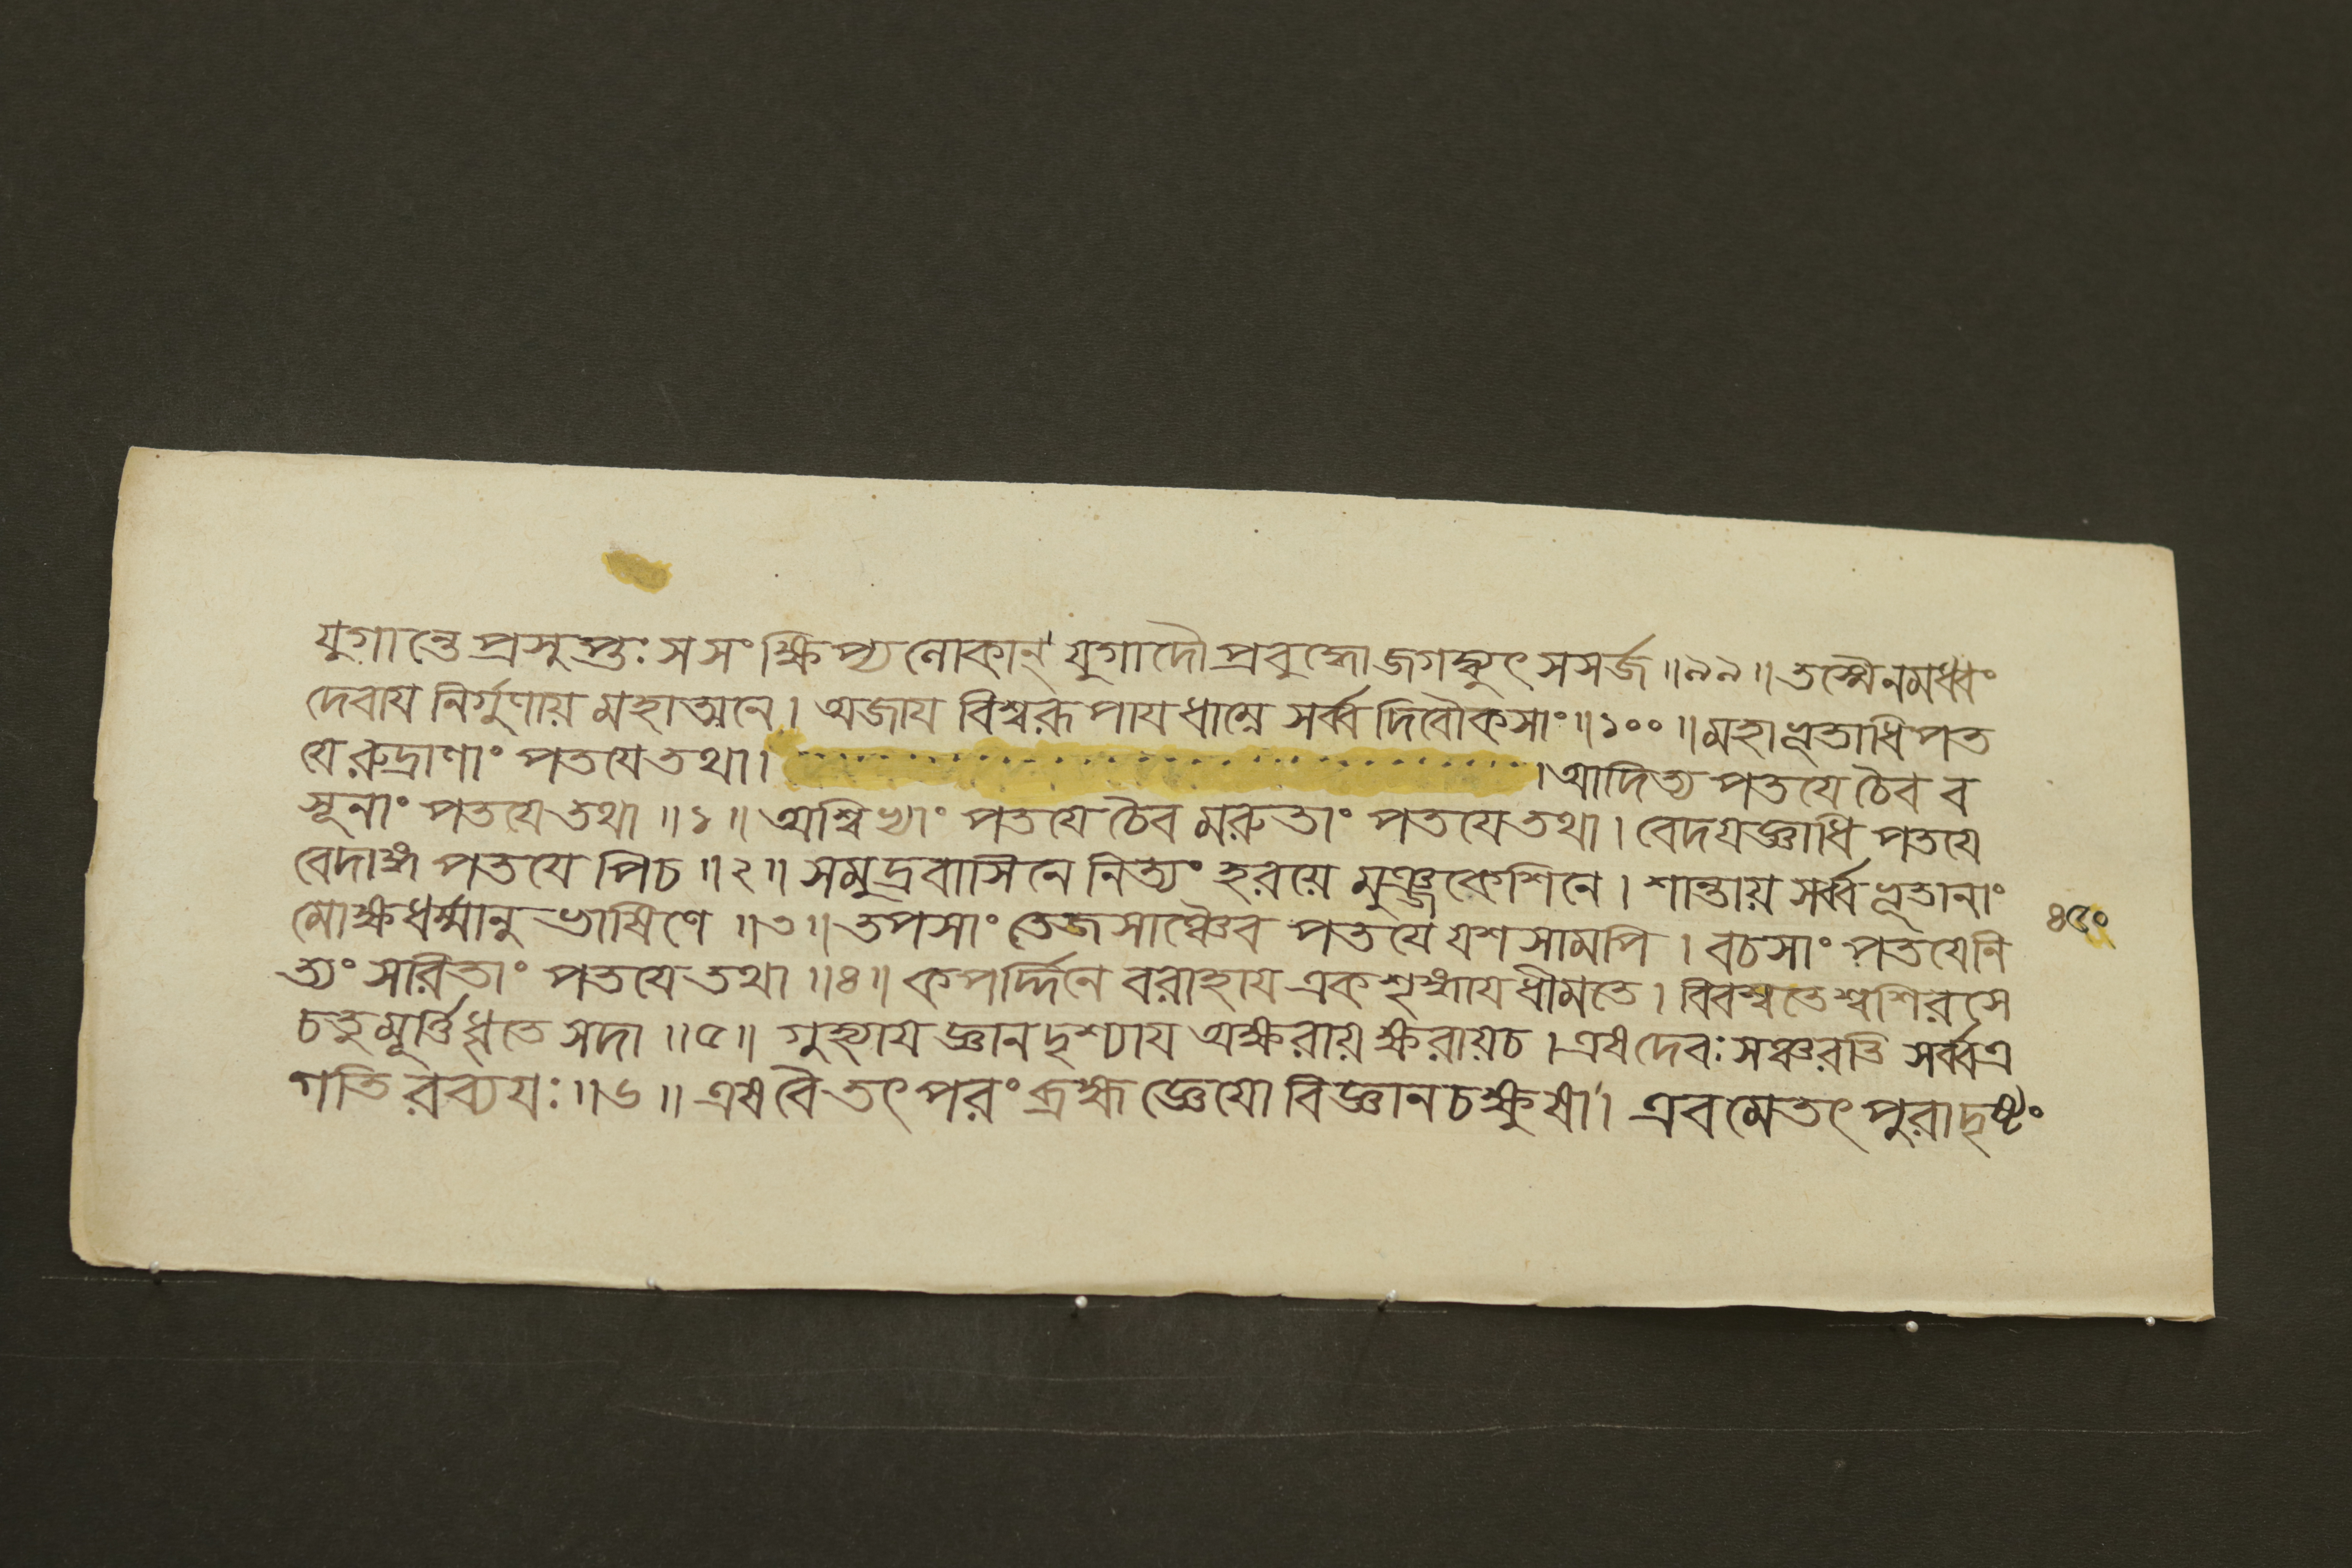 যুগান্তে প্রসুপ্তঃ সসংক্ষিপ্য লোকান্ যুগাদৌ প্রবুদ্ধো জগদ্ধ্যুৎ সসর্জ ॥৯৯॥ তস্মৈ নমধ্বং
দেবায নির্গুণায় মহাত্মনে। অজায বিশ্বরূপায ধাম্নে সর্ব্ব দিবৌকসাং ॥১০০॥ মহাভূতাধিপত
যে রুদ্রাণাং পতযে তথা। । আদিত্য পতযে চৈব ব
সূনাং পতযে তথা ॥১॥ অশ্বিভ্যাং পতযে চৈব মরুতাং পতযে তথা। বেদযজ্ঞাধি পতযে
বেদাঙ্গ পতযে পিচ ॥২॥ সমুদ্রবাসিনে নিত্যং হরয়ে মুঞ্জকেশিনে। শান্তায় সর্ব্বভূতানাং
মোক্ষধর্ম্মানু ভাষিণে ॥৩॥ তপসাং তেজসাঞ্চৈব পতযে যশসামপি। বচসাং পতযে নি
ত্যং সরিতাং পতযে তথা ॥৪॥ কপর্দ্দিনে বরাহায একশৃঙ্গায ধীমতে। বিবস্বতেশ্বশিরসে
চতুমূর্ত্তিধৃতে সদা ॥৫॥ গুহ্যায জ্ঞানদৃশ্যায অক্ষরায় ক্ষরায়চ। এষদেবঃ সঞ্চরতি সর্ব্বত্র
গতি রব্যযঃ ॥৬॥ এষ বৈ তৎ পরং ব্রহ্ম জ্ঞেযো বিজ্ঞান চক্ষুষা। এবমেতৎ পুরাদৃষ্টং
৪৫০